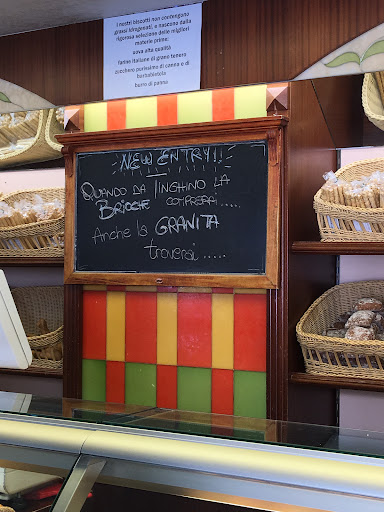 I nostri biscotti non contengono
grassi idrogenati, e nascono dalla
rigorosa selezione delle migliori
materie prime:
uova alta qualità
farine italiane di grano tenero
zucchero purissimo di canna e di
barbabietola
burro di panna
NEW ENTRY!!
QUANDO DA LINGHINO LA
BRIOCHE COMPRERAI.....
Anche la GRANITA
troverai.....